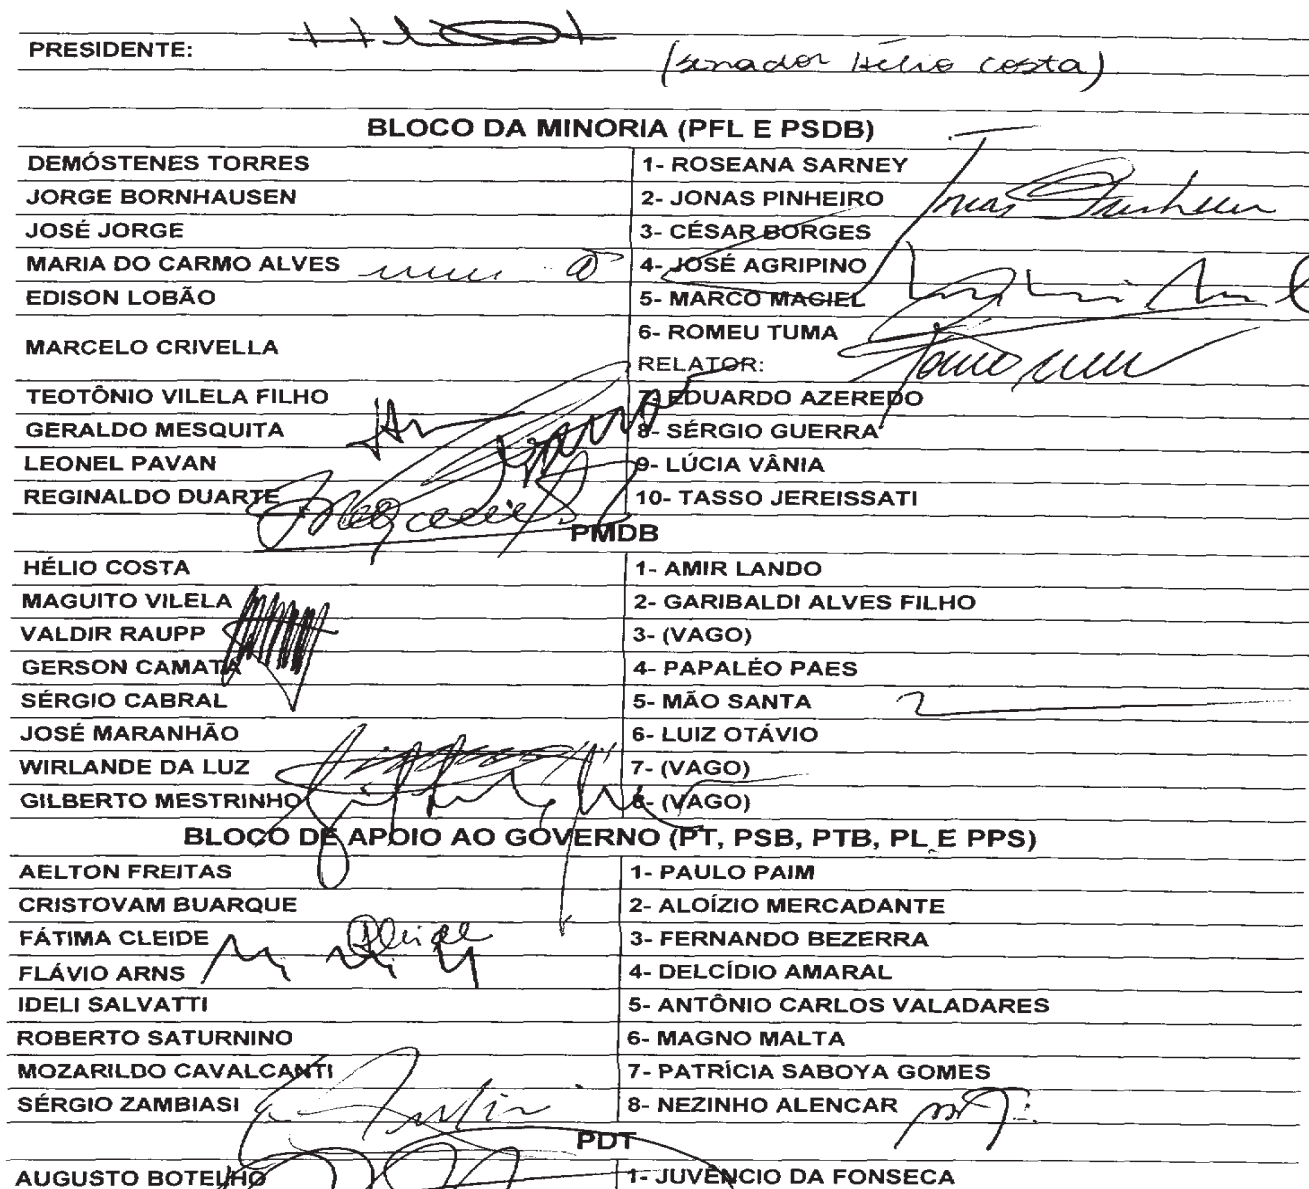 PRESIDENTE:
(senador Hélio Costa)
BLOCO DA MINORIA (PFL E PSDB)
DEMÓSTENES TORRES 1- ROSEANA SARNEY
JORGE BORNHAUSEN 2- JONAS PINHEIRO Jonas Pinheiro
JOSÉ JORGE 3- CÉSAR BORGES
MARIA DO CARMO ALVES 4- JOSÉ AGRIPINO
EDISON LOBÃO 5- MARCO MACIEL
MARCELO CRIVELLA 6- ROMEU TUMA
RELATOR:
TEOTÔNIO VILELA FILHO 7- EDUARDO AZEREDO
GERALDO MESQUITA 8- SÉRGIO GUERRA
LEONEL PAVAN 9- LÚCIA VÂNIA
REGINALDO DUARTE 10- TASSO JEREISSATI
PMDB
HÉLIO COSTA 1- AMIR LANDO
MAGUITO VILELA 2- GARIBALDI ALVES FILHO
VALDIR RAUPP 3- (VAGO)
GERSON CAMATA 4- PAPALÉO PAES
SÉRGIO CABRAL 5- MÃO SANTA
JOSÉ MARANHÃO 6- LUIZ OTÁVIO
WIRLANDE DA LUZ 7- (VAGO)
GILBERTO MESTRINHO 8- (VAGO)
BLOCO DE APOIO AO GOVERNO (PT, PSB, PTB, PL E PPS)
AELTON FREITAS 1- PAULO PAIM
CRISTOVAM BUARQUE 2- ALOÍZIO MERCADANTE
FÁTIMA CLEIDE 3- FERNANDO BEZERRA
FLÁVIO ARNS 4- DELCÍDIO AMARAL
IDELI SALVATTI 5- ANTÔNIO CARLOS VALADARES
ROBERTO SATURNINO 6- MAGNO MALTA
MOZARILDO CAVALCANTI 7- PATRÍCIA SABOYA GOMES
SÉRGIO ZAMBIASI 8- NEZINHO ALENCAR
PDT
AUGUSTO BOTELHO 1- JUVÊNCIO DA FONSECA